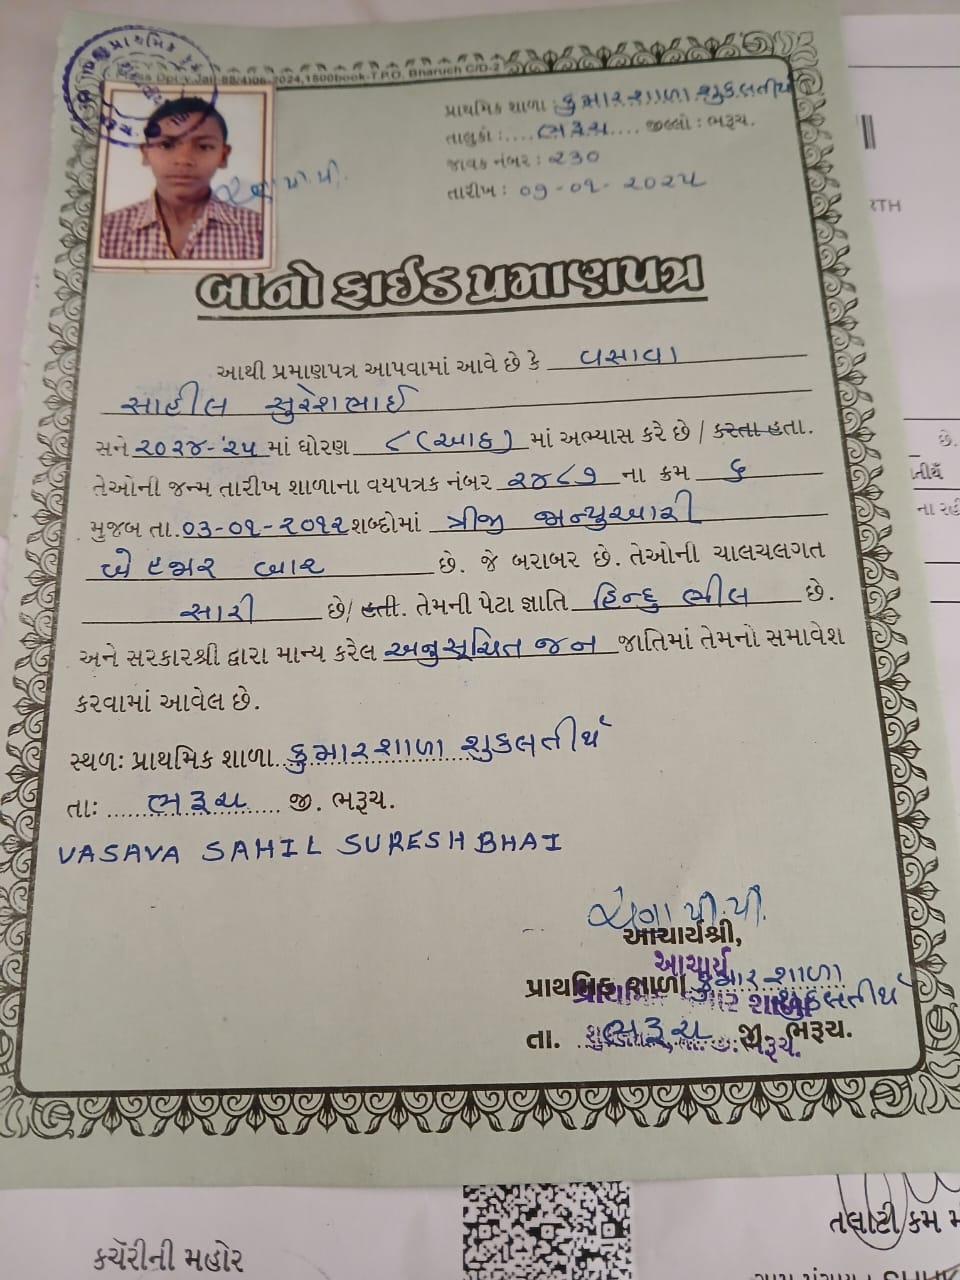 પ્રાથમિક
Jail-88/4)06-2024,1500book-T.P.O. Bharuch C/D-2
પ્રાથમિક શાળા : કુમારશાળા શુકલતીર્થ
તાલુકો :....ભરૂચ.... જીલ્લો : ભરૂચ.
જાવક નંબર : ૨૩૦
તારીખ : ૦૭-૦૧-૨૦૨૫
બોનો ફાઈડ પ્રમાણપત્ર
આથી પ્રમાણપત્ર આપવામાં આવે છે કે વસાવા
સાહીલ સુરેશભાઈ
સને ૨૦૨૪-'૨૫ માં ધોરણ ૮ (આઠ) માં અભ્યાસ કરે છે / કરતા હતા.
તેઓની જન્મ તારીખ શાળાના વયપત્રક નંબર ૨૪૮૭ ના ક્રમ ૬
મુજબ તા. ૦૩-૦૧-૨૦૧૨ શબ્દોમાં ત્રીજી જાન્યુઆરી
બે હજાર બાર છે. જે બરાબર છે. તેઓની ચાલચલગત
સારી છે/ હતી. તેમની પેટા જ્ઞાતિ હિન્દુ ભીલ છે.
અને સરકારશ્રી દ્વારા માન્ય કરેલ અનુસૂચિત જન જાતિમાં તેમનો સમાવેશ
કરવામાં આવેલ છે.
સ્થળઃ પ્રાથમિક શાળા કુમારશાળા શુકલતીર્થ
તાઃ ભરૂચ જી. ભરૂચ.
VASAVA SAHIL SURESHBHAI
આચાર્યશ્રી,
આચાર્ય
પ્રાથમિક શાળા કુમારશાળા શુકલતીર્થ
તા. ભરૂચ જી. ભરૂચ.
RTH
છે.
તીર્થ
ના રહી
તલાટી કમ મ
કચેરીની મહોર